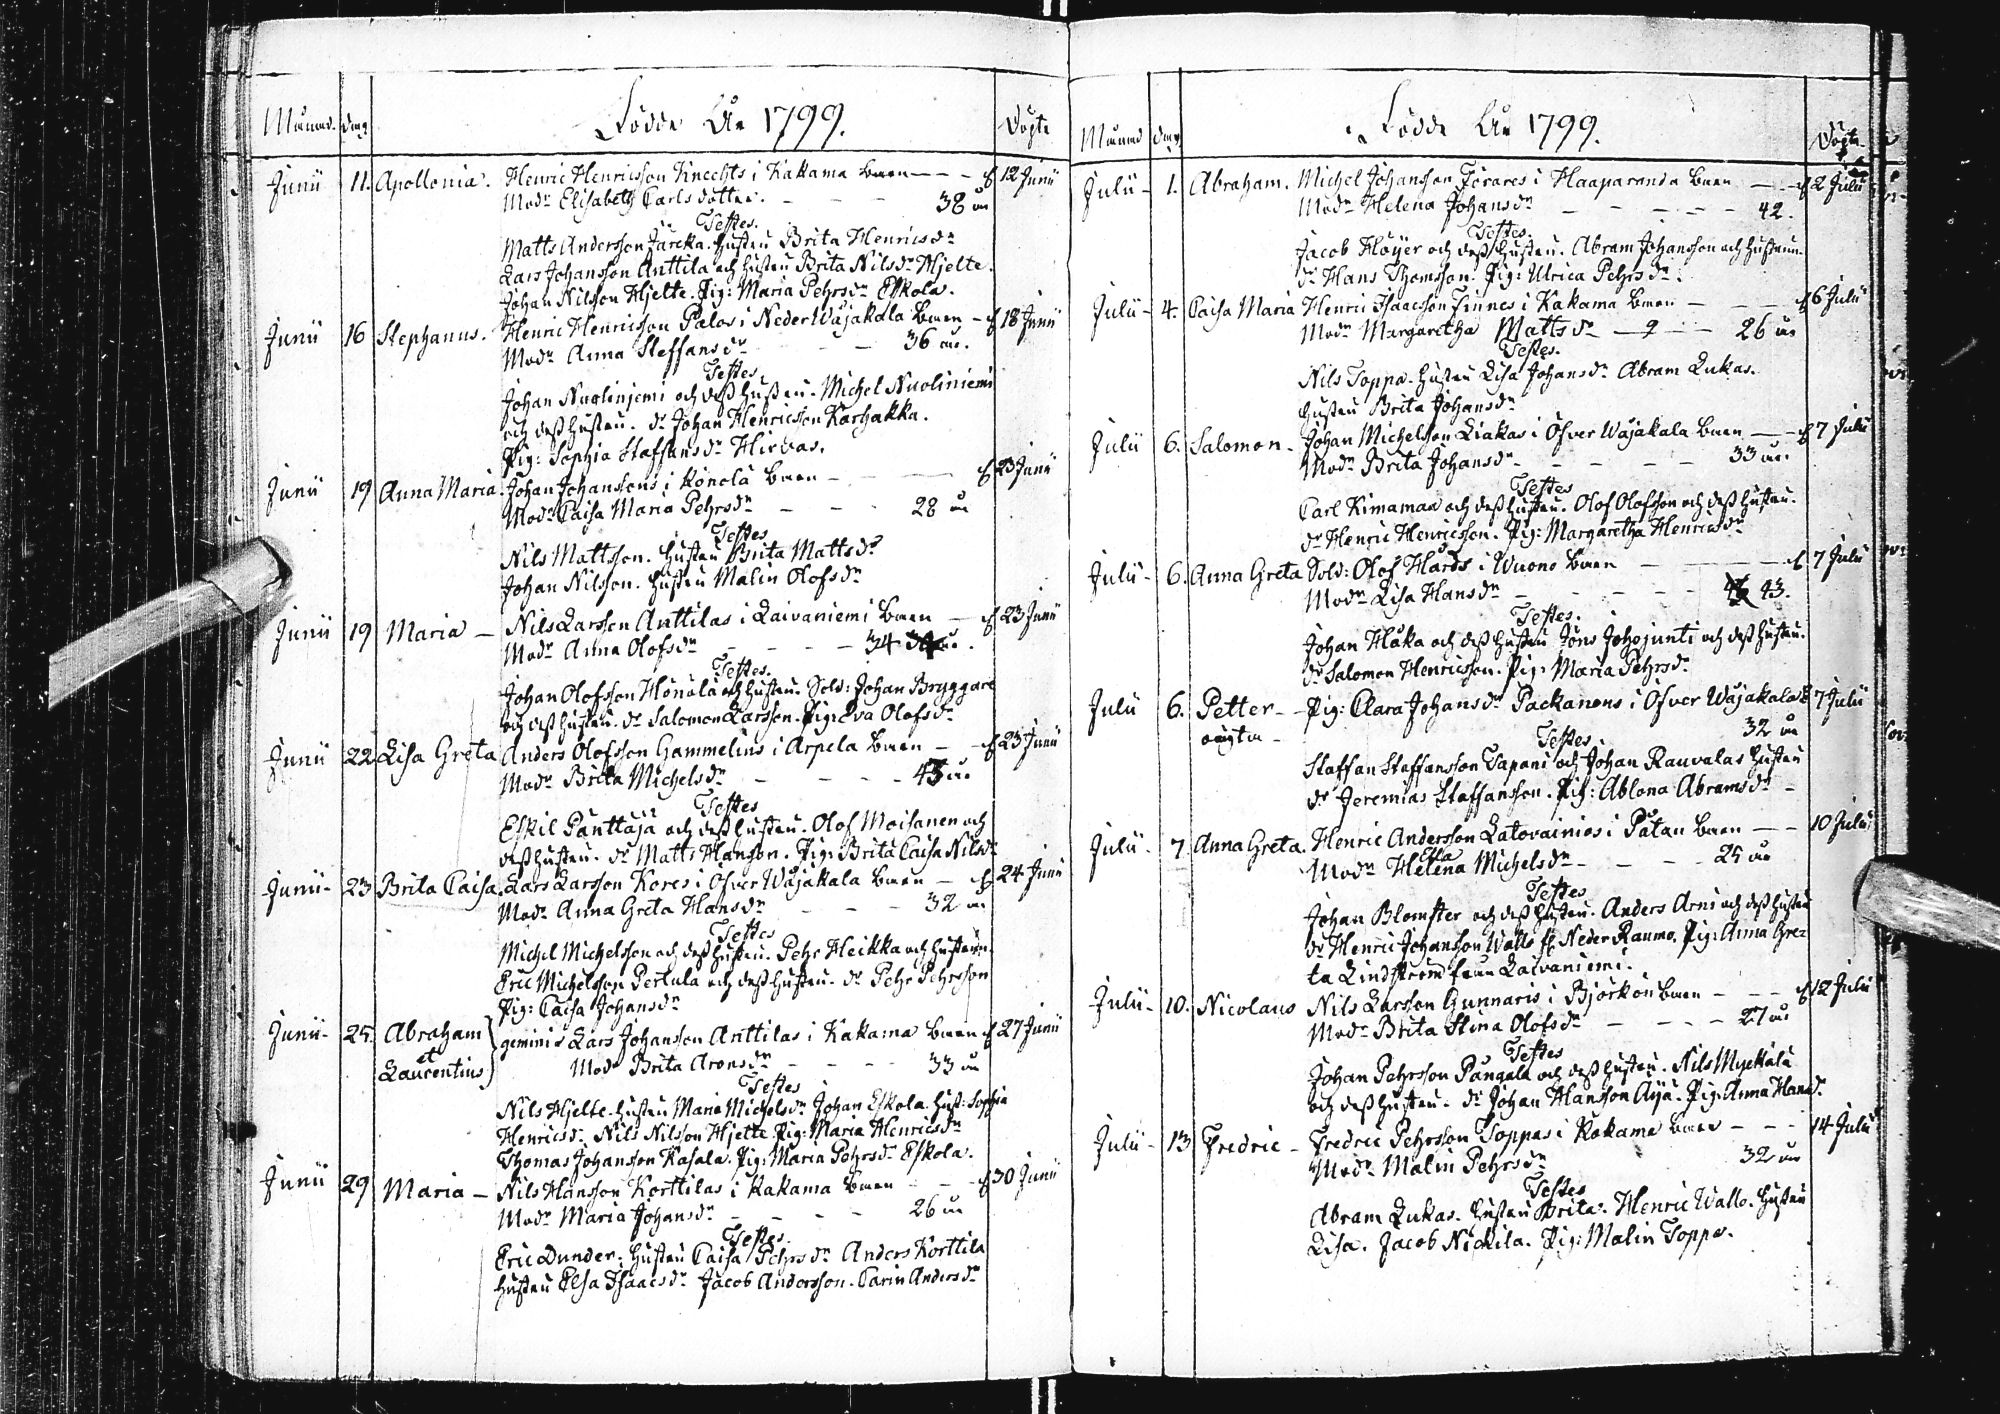 Månad. dag. Födde År 1799. Döpte
Junii 11. Apollonia. Henric Henricsson Knechts i Kakama Barn - - - 12 Junii
Modr Elisabeth Carlsdotter. - - - 38 år
Testes.
Matts Andersson Järcka. hustru Brita Henricsdr
Lars Johansson Anttila och hustru Brita Nilsdr Hjelte.
Johan Nilsson Hjelte. Pig: Maria Pehrsdr Eskola.
Junii 16 Stephanus. Henric Henricsson Palos i Neder Wåjakala Barn - 18 Junii
Modr Anna Steffansdr - - 36 år.
Testes
Johan Nuolinjemi och dess hustru. Michel Nuoliniemi
och dess hustru. dr Johan Henricsson Karhakka.
Pig: Sophia Staffansdr Hirvas.
Junii 19 Anna Maria. Johan Johanssons i Könölä Barn - 23 Junii
Modr Caisa Maria Pehrsdr - - - 28 år
Testes
Nils Mattsson. hustru Brita Mattsdr
Johan Nilsson. hustru Malin Olofsdr
Junii 19 Maria - Nils Larsson Anttilas i Laivaniemi Barn - 23 Junii
Modr Anna Olofsdr - - - - 34 år.
Testes.
Johan Olofsson Hönälä och hustru. Sold: Johan Bryggare
och dess hustru. dr Salomon Larsson. Pig: Eva Olofsdr
Junii 22 Lisa Greta Anders Olofsson Gammelins i Arpela Barn - - 23 Junii
Modr Brita Michelsdr - - - - 43 år
Testes
Eskil Panttaja och dess hustru. Olof Moisanen och
dess hustru. dr Matts Hanson. Pig: Brita Caisa Nilsdr
Junii - 23 Brita Caisa. Lars Larsson Kores i Ofver Wåjakala Barn - 24 Junii
Modr Anna Greta Hansdr - - - 32 år
Testes
Michel Michelsson och dess hustru. Pehr Heikka och hustrun.
Eric Michelsson Pertula och dess hustru. dr Pehr Pehrsson
Pig: Caisa Johansdr
Junii - 25 Abraham et Laurentius} geminis Lars Johansson Anttilas i Kakama Barn 27 Junii
Modr Brita Aronsdr - - - 33 år
Testes
Nils Hjelte. hustru Maria Michelsdr Johan Eskola. hust: Sophia
Henricsdr. Nils Nilsson Hjelte. Pig: Maria Henricsdr
Thomas Johansson Kasala. Pig: Maria Pehrsdr Eskola.
Junii 29 Maria - Nils Hansson Korttilas i Kakama Barn - - 30 Junii
Modr Maria Johansdr - - - - 26 år
Testes.
Eric Dunder. hustru Caisa Pehrsdr Anders Korttila
hustru Elsa Isaacsdr Jacob Andersson. Carin Andersdr
Månad dag. Födde År 1799. Döpte
Julii - 1. Abraham. Michel Johansson Törares i Haaparanda Barn - - 2 Julii
Modr Helena Johansdr - - - - - 42.
Testes.
Jacob Höyer och dess hustru. Abram Johansson och hustrun
dr Hans Thomsson. Pig: Ulrica Pehrsdr.
Julii - 4. Caisa Maria Henric Isaacsson Finnes i Kakama Barn - - - 6 Julii
Modr Margaretha Mattsdr - - 26 år
Testes.
Nils Toppo. hustru Lisa Johansdr Abram Lukas.
hustru Brita Johansdr
Julii 6. Salomon - Johan Michelsson Liakas i Ofver Wåjakala Barn - - 7 Julii
Modr Brita Johansdr - - - - - 33 år.
Testes
Carl Kimamaa och dess hustru. Olof Olofsson och dess hustru.
dr Henric Henricsson. Pig: Margaretha Henricsdr
Julii - 6. Anna Greta Sold: Olof Hårds i Wuono Barn - 7 Julii
Modr Lisa Hansdr - - - - - 43.
Testes.
Johan Håka och dess hustru Jöns Johojunti och dess hustru.
dr Salomon Henricsson. Pig: Maria Pehrsdr
Julii 6. Petter - Pig: Clara Johansdr Packanens i Ofver Wåjakala 7 Julii
oägta - 32 år
Testes.
Staffan Staffansson Tapani och Johan Rauvalas hustru
dr Jeremias Staffansson. Pig: Ablona Abramsdr -
Julii - 7. Anna Greta. Henric Andersson Latovainios i Patan Barn - - 10 Julii
Elsa
Modr Helena Michelsdr - - - - 25 år
Testes
Johan Blomster och dess hustru. Anders Arni och dess hustru
dr Henric Johansson Wallo fr Neder Raumo. Pig: Anna Gre=
ta Lindström från Laivaniemi.
Julii - 10. Nicolaus Nils Larsson Gunnaris i Björkön Barn - - - 12 Julii
Modr Brita Stina Olofsdr - - - - 27 år
Testes
Johan Pehrsson Pangala och dess hustru. Nils Myckälä
och dess hustru. dr Johan Hansson Äyä. Pig: Anna Hansdr
Julii - 13 Fredric - Fredric Pehrsson Toppos i Kakama Barn - - - 14 Julii
Modr Malin Pehrsdr 32 år
Testes
Abram Lukas. hustru Brita. Henric Wallo. hustru
Lisa. Jacob Nickila. Pig: Malin Toppo.